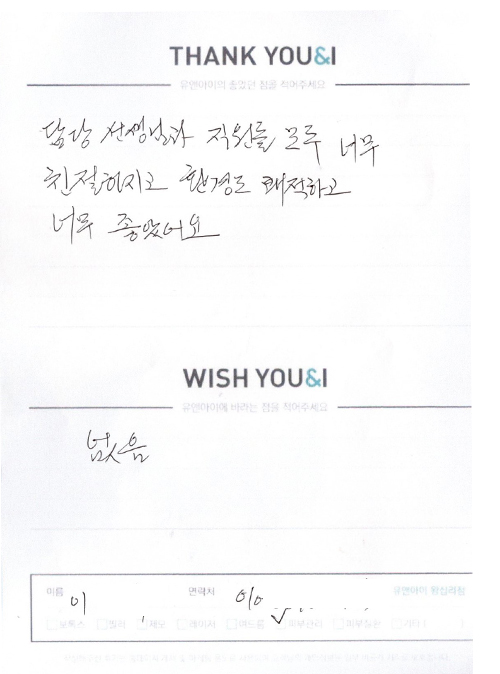 THANK YOU&I
유앤아이의 좋았던 점을 적어주세요
담당 선생님과 직원들 모두 너무
친절하시고 환경도 쾌적하고
너무 좋았어요
WISH YOU&I
유앤아이에 바라는 점을 적어주세요
없음
이름 이 연락처 010 유앤아이 왕십리점
보톡스 필러 제모 레이저 여드름 피부관리 피부질환 기타